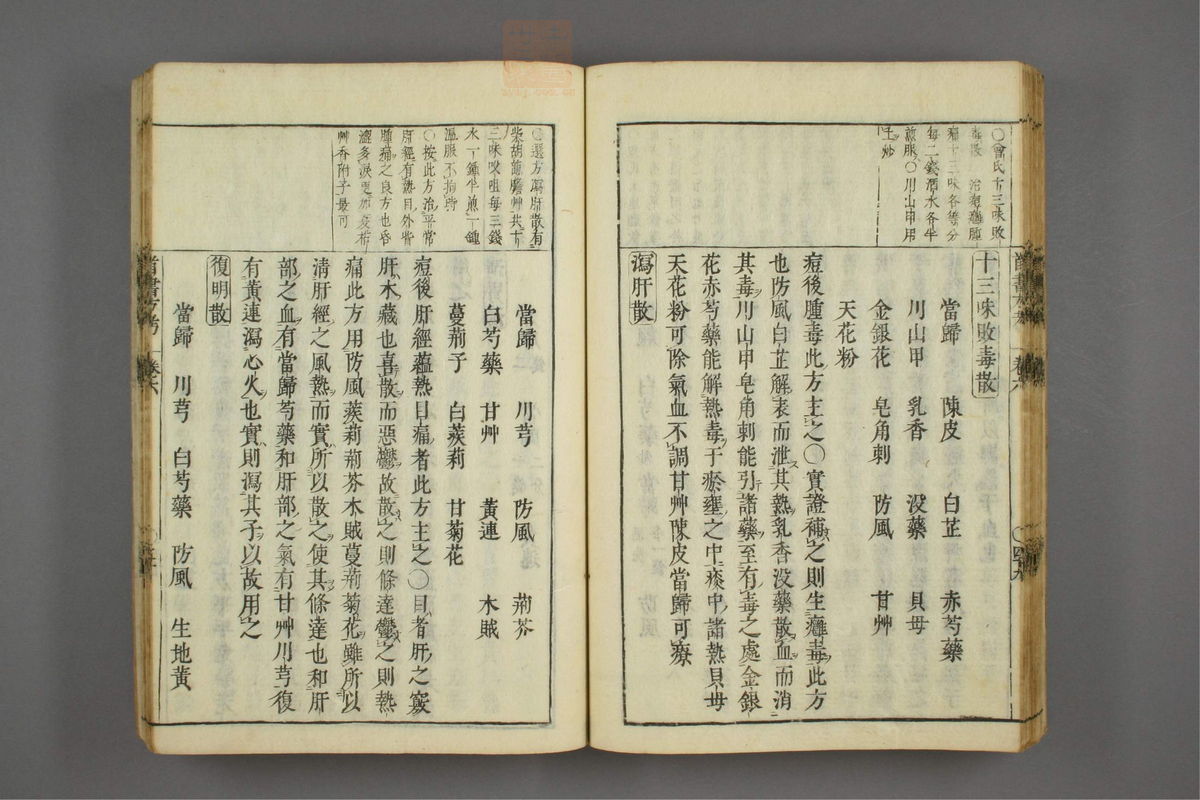 十三味敗毒散
當歸 陳皮 白芷 赤芍藥
川山甲 乳香 没藥 貝母
金銀花 皂角刺 防風 甘艸
天花粉
痘後腫毒此方主之○實證補之則生癰毒此方
也防風白芷解表而泄其熱乳香没藥散血而消
其毒川山甲皂角刺能引諸藥至有毒之處金銀
花赤芍藥能解熱毒于瘀壅之中痰中諸熱貝母
天花粉可除氣血不調甘艸陳皮當歸可療
瀉肝散
每二錢酒水各半
煎服○川山甲用
土炒
當歸 川芎 防風 荊芥
白芍藥 甘艸 黃連 木賊
蔓荊子 白蒺莉 甘菊花
痘後肝經蘊熱目痛者此方主之○目者肝之竅
肝木藏也喜散而惡鬱故散之則條達鬱之則熱
痛此方用防風蒺莉荊芥木賊蔓荊菊花雖所以
清肝經之風熱而實所以散之使其條達也和肝
部之血有當歸芍藥和肝部之氣有甘艸川芎復
有黃連瀉心火也實則瀉其子以故用之
復明散
當歸 川芎 白芍藥 防風 生地黃
○選方瀉肝散有
柴胡龍膽艸共十
三味㕮咀每三錢
水一鍾半煎一鍾
溫服不拘時
○按此方治平常
肝經有熱目外眥
腫痛之良方也昏
澀多淚更加夏枯
艸香附子最可